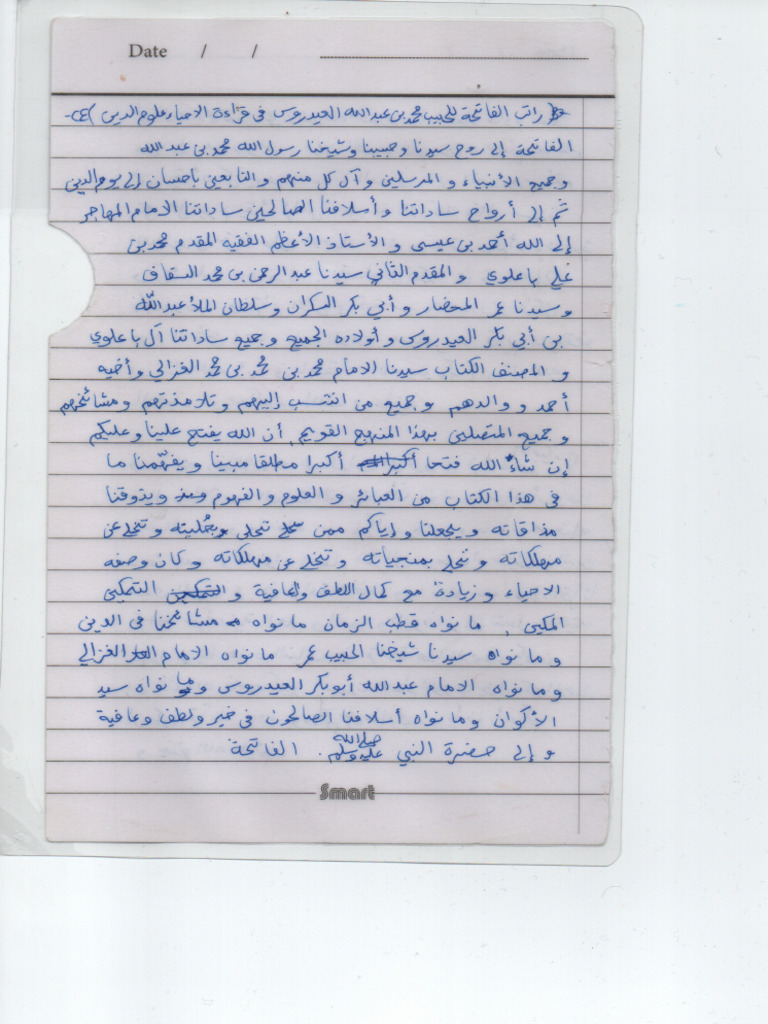 Date / /
راتب الفاتحة للحبيب محمد بن عبد الله العيدروس في قراءة الاحياء علوم الدين
الفاتحة إلى روح سيدنا وحبيبنا وشيخنا رسول الله محمد بن عبد الله
وجميع الأنبياء والمرسلين وآل كل منهم والتابعين بإحسان إلى يوم الدين
ثم إلى أرواح ساداتنا وأسلافنا الصالحين ساداتنا الامام المهاجر
إلى الله أحمد بن عيسى والأستاذ الأعظم الفقيه المقدم محمد بن
علي باعلوي والمقدم الثاني سيدنا عبد الرحمن بن محمد السقاف
وسيدنا عمر المحضار وأبي بكر السكران وسلطان الملأ عبد الله
بن أبي بكر العيدروس وأولاده الجميع وجميع ساداتنا آل باعلوي
والمصنف الكتاب سيدنا الامام محمد بن محمد بن محمد الغزالي وأخيه
أحمد ووالدهم وجميع من انتسب إليهم وتلامذتهم ومشائخهم
وجميع المتصلين بهذا المنهج القويم، أن الله يفتح علينا وعليكم
إن شاء الله فتحا أكبرا مطلقا مبينا ويفهّمنا ما
في هذا الكتاب من العبائر والعلوم والفهوم ويذوقنا
مذاقاته ويجعلنا وإياكم ممن تحلى وتخلى عن
مهلكاته وتحلى بمنجياته وتخلى عن مهلكاته وكان وصفه
الاحياء وزيادة مع كمال اللطف والعافية والتمكين التمكين
المكين، ما نواه قطب الزمان ما نواه مشائخنا في الدين
وما نواه سيدنا شيخنا الحبيب عمر ما نواه الامام الغزالي
وما نواه الامام عبد الله أبو بكر العيدروس وما نواه سيد
الأكوان وما نواه أسلافنا الصالحون في خير ولطف وعافية
وإلى حضرة النبي صلى الله عليه وسلم. الفاتحة
Smart